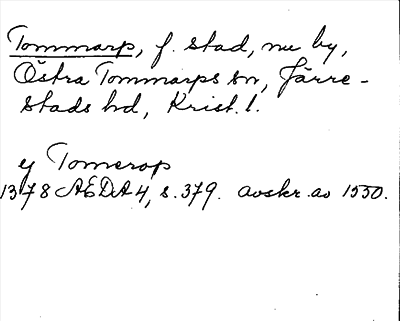 Tommarp, f. stad, nu by,
Östra Tommarps sn, Järre-
stads hd, Krist. l.
ej Tomerop
1378 AEDA 4, s. 379. avskr. av 1550.